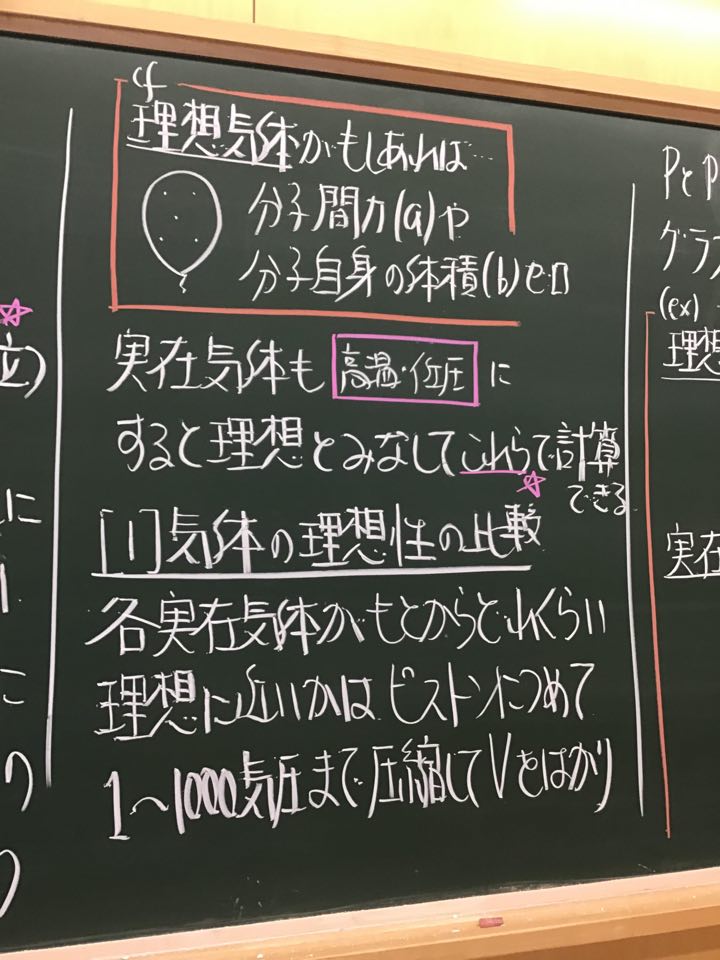 cf
理想気体がもしあれば…
分子間力(a)や
分子自身の体積(b)ゼロ
実在気体も 高温・低圧 に
すると理想とみなしてこれらで計算
できる
[1]気体の理想性の比較
各実在気体がもとからどれくらい
理想に近いかは ピストンにつめて
1〜1000気圧まで圧縮してVをはかり
PとP
グラフ
(ex)
理想
実在